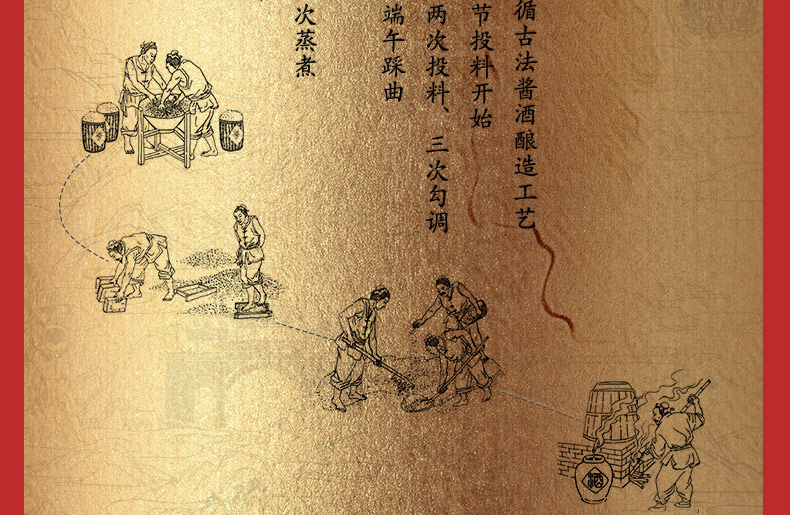 循古法酱酒酿造工艺
节投料开始
两次投料、三次勾调
端午踩曲
次蒸煮
酒